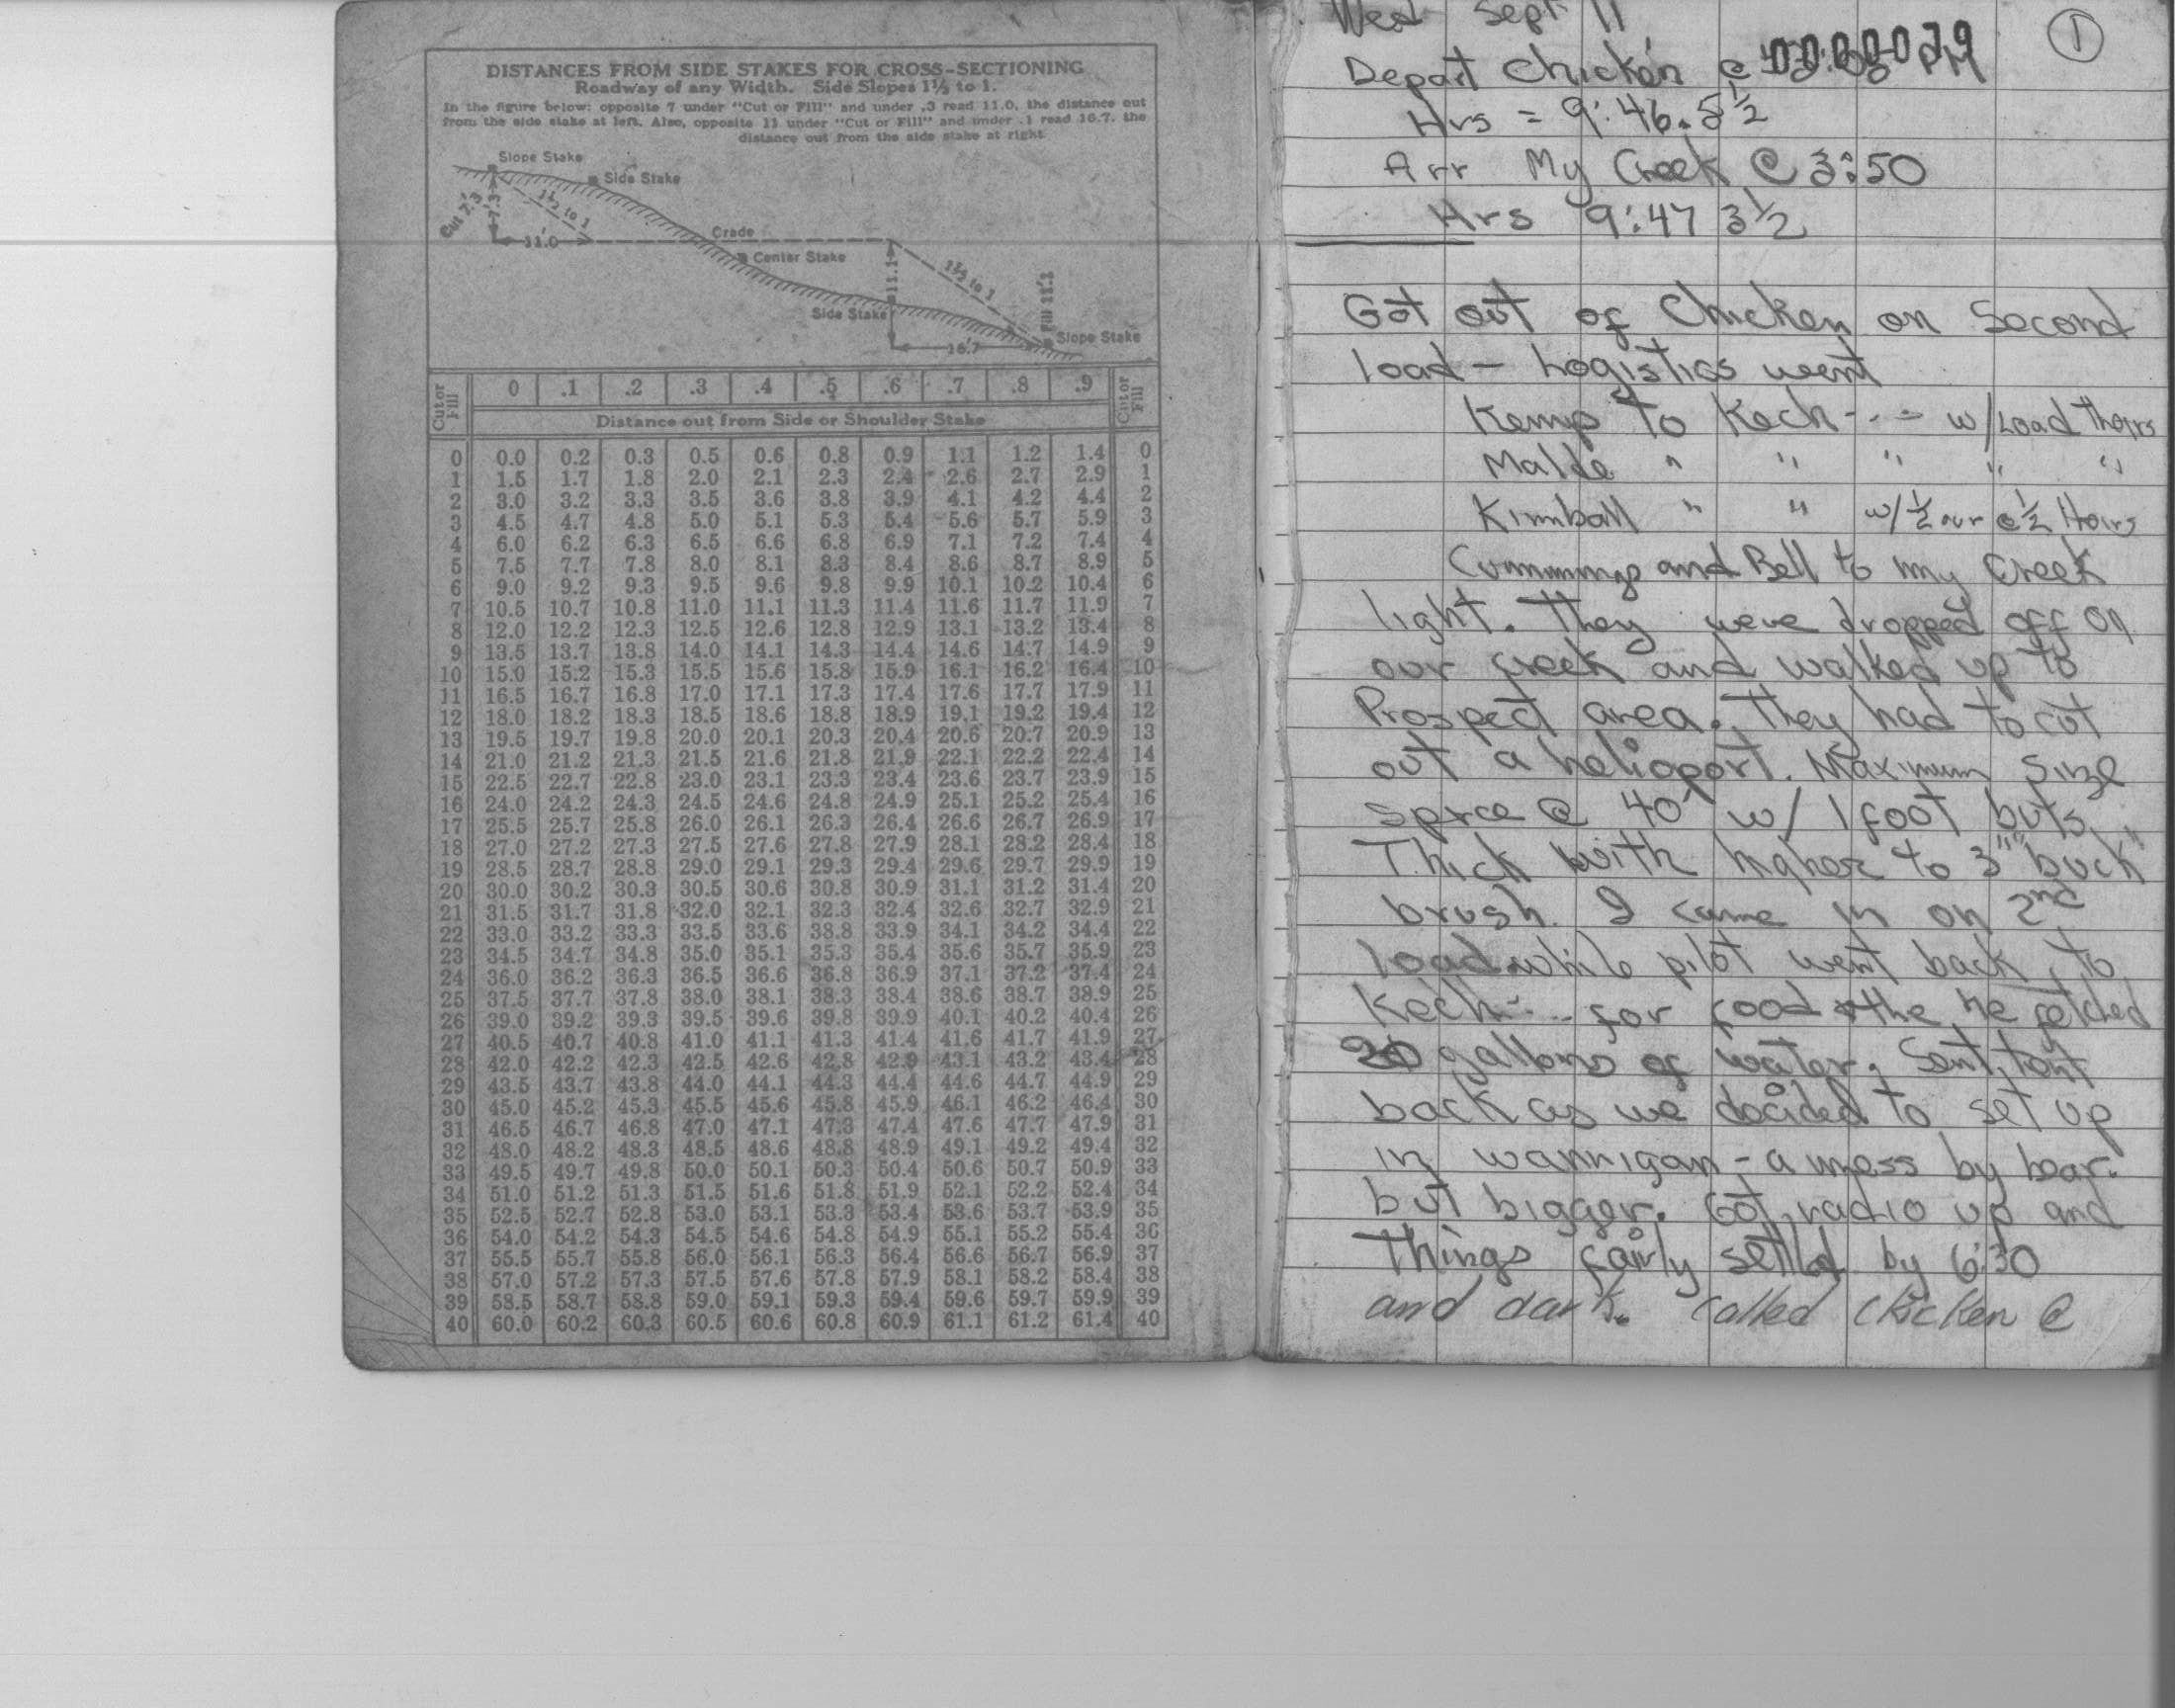 DISTANCES FROM SIDE STAKES FOR CROSS-SECTIONING
Roadway of any Width. Side Slopes 1½ to 1.
In the figure below: opposite 7 under "Cut or Fill" and under .3 read 11.0, the distance out
from the side stake at left. Also, opposite 11 under "Cut or Fill" and under .1 read 16.7, the
distance out from the side stake at right.
Slope Stake
Side Stake
Cut 7.3
7.3
1½ to 1
11.0
Grade
Center Stake
11.1
1½ to 1
Side Stake
Fill 11.1
16.7
Slope Stake
Cut or Fill 0 .1 .2 .3 .4 .5 .6 .7 .8 .9 Cut or Fill
Distance out from Side or Shoulder Stake
0 0.0 0.2 0.3 0.5 0.6 0.8 0.9 1.1 1.2 1.4 0
1 1.5 1.7 1.8 2.0 2.1 2.3 2.4 2.6 2.7 2.9 1
2 3.0 3.2 3.3 3.5 3.6 3.8 3.9 4.1 4.2 4.4 2
3 4.5 4.7 4.8 5.0 5.1 5.3 5.4 5.6 5.7 5.9 3
4 6.0 6.2 6.3 6.5 6.6 6.8 6.9 7.1 7.2 7.4 4
5 7.5 7.7 7.8 8.0 8.1 8.3 8.4 8.6 8.7 8.9 5
6 9.0 9.2 9.3 9.5 9.6 9.8 9.9 10.1 10.2 10.4 6
7 10.5 10.7 10.8 11.0 11.1 11.3 11.4 11.6 11.7 11.9 7
8 12.0 12.2 12.3 12.5 12.6 12.8 12.9 13.1 13.2 13.4 8
9 13.5 13.7 13.8 14.0 14.1 14.3 14.4 14.6 14.7 14.9 9
10 15.0 15.2 15.3 15.5 15.6 15.8 15.9 16.1 16.2 16.4 10
11 16.5 16.7 16.8 17.0 17.1 17.3 17.4 17.6 17.7 17.9 11
12 18.0 18.2 18.3 18.5 18.6 18.8 18.9 19.1 19.2 19.4 12
13 19.5 19.7 19.8 20.0 20.1 20.3 20.4 20.6 20.7 20.9 13
14 21.0 21.2 21.3 21.5 21.6 21.8 21.9 22.1 22.2 22.4 14
15 22.5 22.7 22.8 23.0 23.1 23.3 23.4 23.6 23.7 23.9 15
16 24.0 24.2 24.3 24.5 24.6 24.8 24.9 25.1 25.2 25.4 16
17 25.5 25.7 25.8 26.0 26.1 26.3 26.4 26.6 26.7 26.9 17
18 27.0 27.2 27.3 27.5 27.6 27.8 27.9 28.1 28.2 28.4 18
19 28.5 28.7 28.8 29.0 29.1 29.3 29.4 29.6 29.7 29.9 19
20 30.0 30.2 30.3 30.5 30.6 30.8 30.9 31.1 31.2 31.4 20
21 31.5 31.7 31.8 32.0 32.1 32.3 32.4 32.6 32.7 32.9 21
22 33.0 33.2 33.3 33.5 33.6 38.8 33.9 34.1 34.2 34.4 22
23 34.5 34.7 34.8 35.0 35.1 35.3 35.4 35.6 35.7 35.9 23
24 36.0 36.2 36.3 36.5 36.6 36.8 36.9 37.1 37.2 37.4 24
25 37.5 37.7 37.8 38.0 38.1 38.3 38.4 38.6 38.7 38.9 25
26 39.0 39.2 39.3 39.5 39.6 39.8 39.9 40.1 40.2 40.4 26
27 40.5 40.7 40.8 41.0 41.1 41.3 41.4 41.6 41.7 41.9 27
28 42.0 42.2 42.3 42.5 42.6 42.8 42.9 43.1 43.2 43.4 28
29 43.5 43.7 43.8 44.0 44.1 44.3 44.4 44.6 44.7 44.9 29
30 45.0 45.2 45.3 45.5 45.6 45.8 45.9 46.1 46.2 46.4 30
31 46.5 46.7 46.8 47.0 47.1 47.3 47.4 47.6 47.7 47.9 31
32 48.0 48.2 48.3 48.5 48.6 48.8 48.9 49.1 49.2 49.4 32
33 49.5 49.7 49.8 50.0 50.1 50.3 50.4 50.6 50.7 50.9 33
34 51.0 51.2 51.3 51.5 51.6 51.8 51.9 52.1 52.2 52.4 34
35 52.5 52.7 52.8 53.0 53.1 53.3 53.4 53.6 53.7 53.9 35
36 54.0 54.2 54.3 54.5 54.6 54.8 54.9 55.1 55.2 55.4 36
37 55.5 55.7 55.8 56.0 56.1 56.3 56.4 56.6 56.7 56.9 37
38 57.0 57.2 57.3 57.5 57.6 57.8 57.9 58.1 58.2 58.4 38
39 58.5 58.7 58.8 59.0 59.1 59.3 59.4 59.6 59.7 59.9 39
40 60.0 60.2 60.3 60.5 60.6 60.8 60.9 61.1 61.2 61.4 40
Wed Sept 11
1
0000079
Depart Chicken @ PM
Hrs = 9:46.5½
Arr My Creek @ 3:50
Hrs 9:47 3½
Got out of Chicken on Second
load - Logistics went
Kemp to Kech--- w/Load Theirs
Malde " " " " "
Kimball " " w/½ our @ ½ Theirs
Cummings and Bell to my Creek
light. They were dropped off on
our creek and walked up to
Prospect area. They had to cut
out a helioport. Maximum size
sprce @ 40' w/ 1 foot buts.
Thick with higher to 3" "buck"
brush. I came in on 2nd
load while pilot went back to
Kech--- for food the he fetched
20 gallons of water. Sent tent
back as we decided to set up
in wannigan - a mess by bear.
but bigger. Got radio up and
Things fairly settled by 6:30
and dark. Called Chicken @